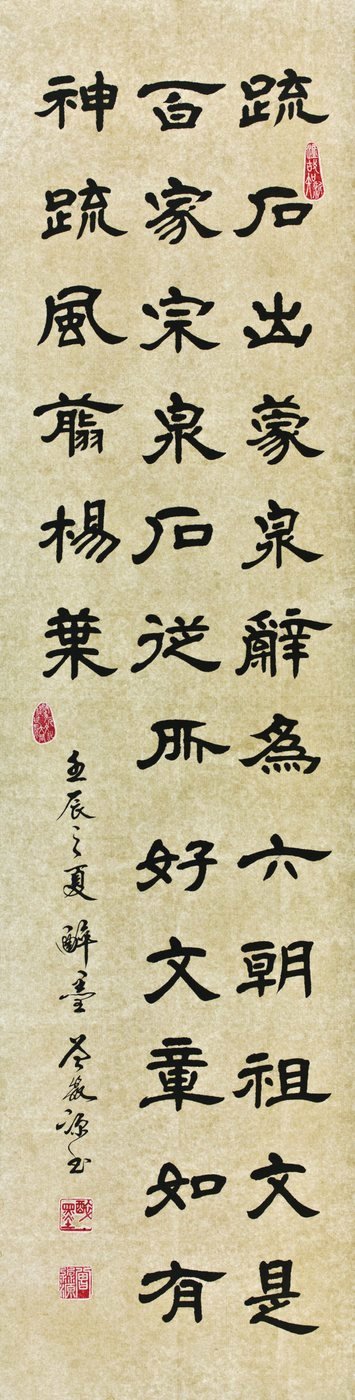 疏石出蒙泉辭為六朝祖文是
百家宗泉石從所好文章如有
神疏風翦楊葉
壬辰之夏醉墨